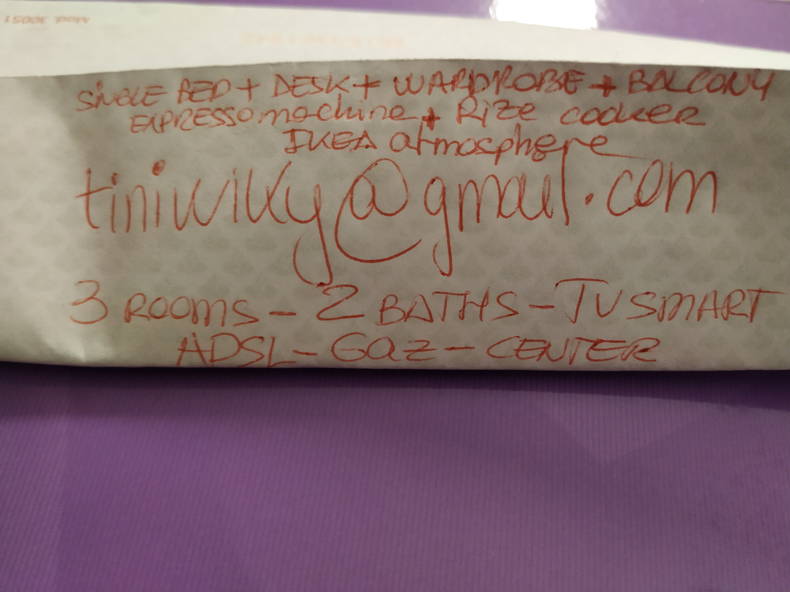 SINGLE BED + DESK + WARDROBE + BALCONY
EXPRESSO machine + Rize cooker
IKEA atmosphere
tiniwiky@gmail.com
3 ROOMS - 2 BATHS - TV SMART
ADSL - GAZ - CENTER